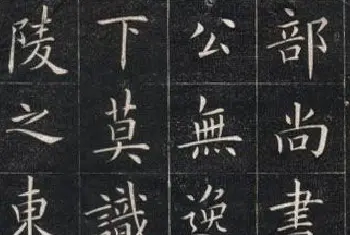 部尚書
公無逸
下莫識
陵之東